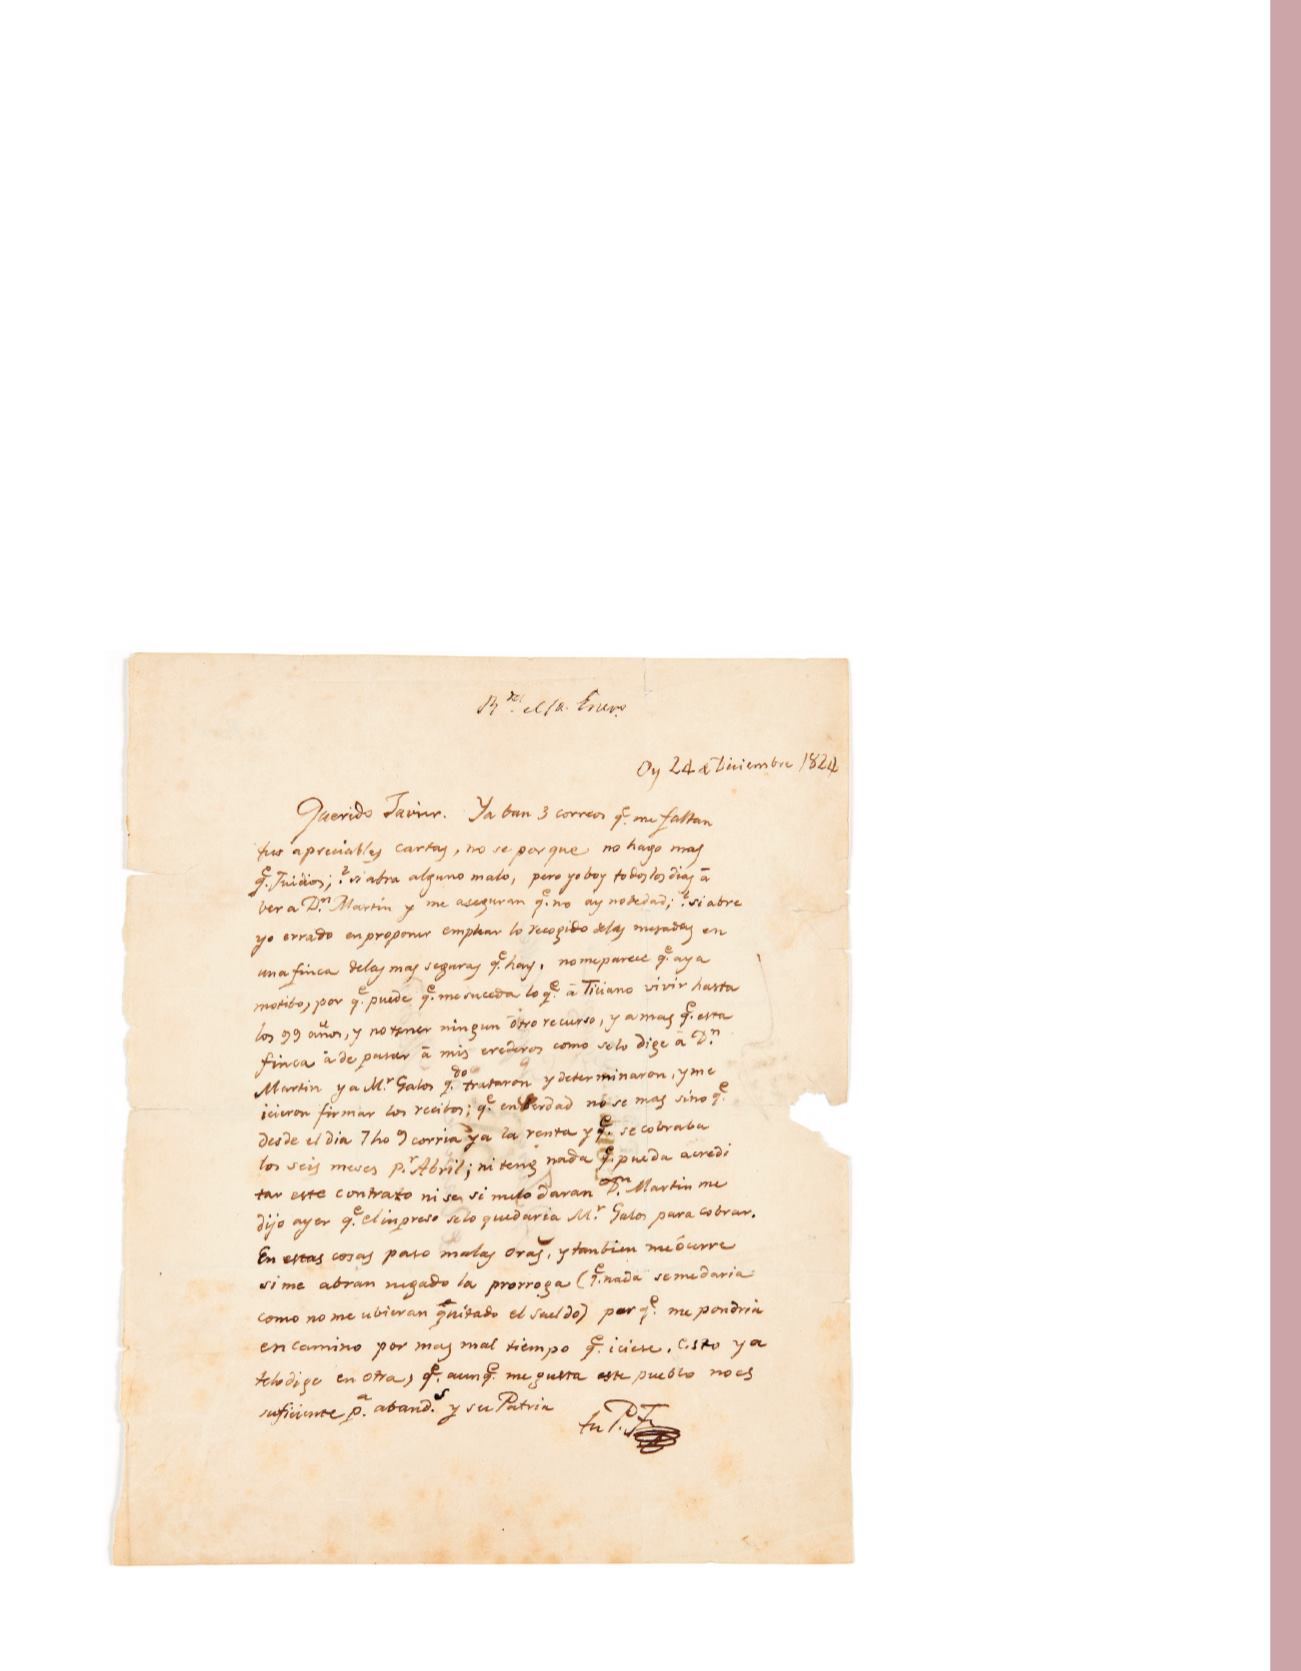 R.da el 1.º Enero
Oy 24 de Diciembre 1824
Querido Javier. Ya ban 3 correos q.e me faltan
tus apreciables cartas, no se porque no hago mas
q.e Juicios; ? si abra alguno malo, pero yo boy todos los dias ā
ver a D.n Martin y me aseguran q.e no ay nobedad; ? si abre
yo errado en proponer emplear lo recogido de las mesadas en
una finca de las mas seguras q.e hay, no me parece q.e aya
motibo, por q.e puede q.e me suceda lo q.e ā Ticiano vivir hasta
los 99 años, y no tener ningun otro recurso, y a mas q.e esta
finca ā de pasar ā mis erederos como se lo dige ā D.n
Martin y a M.r Galos q.do trataron y determinaron, y me
icieron firmar los recibos; q.e en berdad no se mas sino q.e
desde el dia 7 ho 9 corria ya la renta y q.e se cobraba
los seis meses p.r Abril; ni teng nada q.e pueda acredi
tar este contrato ni se si me lo daran D.n Martin me
dijo ayer q.e el inpreso se lo quedaria M.r Galos para cobrar.
En estas cosas paso malas oras, y tanbien me ócurre
si me abran negado la prorroga (q.e nada se me daria
como no me ubieran quitado el sueldo) por q.e me pondria
en camino por mas mal tiempo q.e iciese. Esto ya
telo dige en otra, q.e aunq.e me gusta este pueblo no es
suficiente p.a aband.s y su Patria
tu P. F.